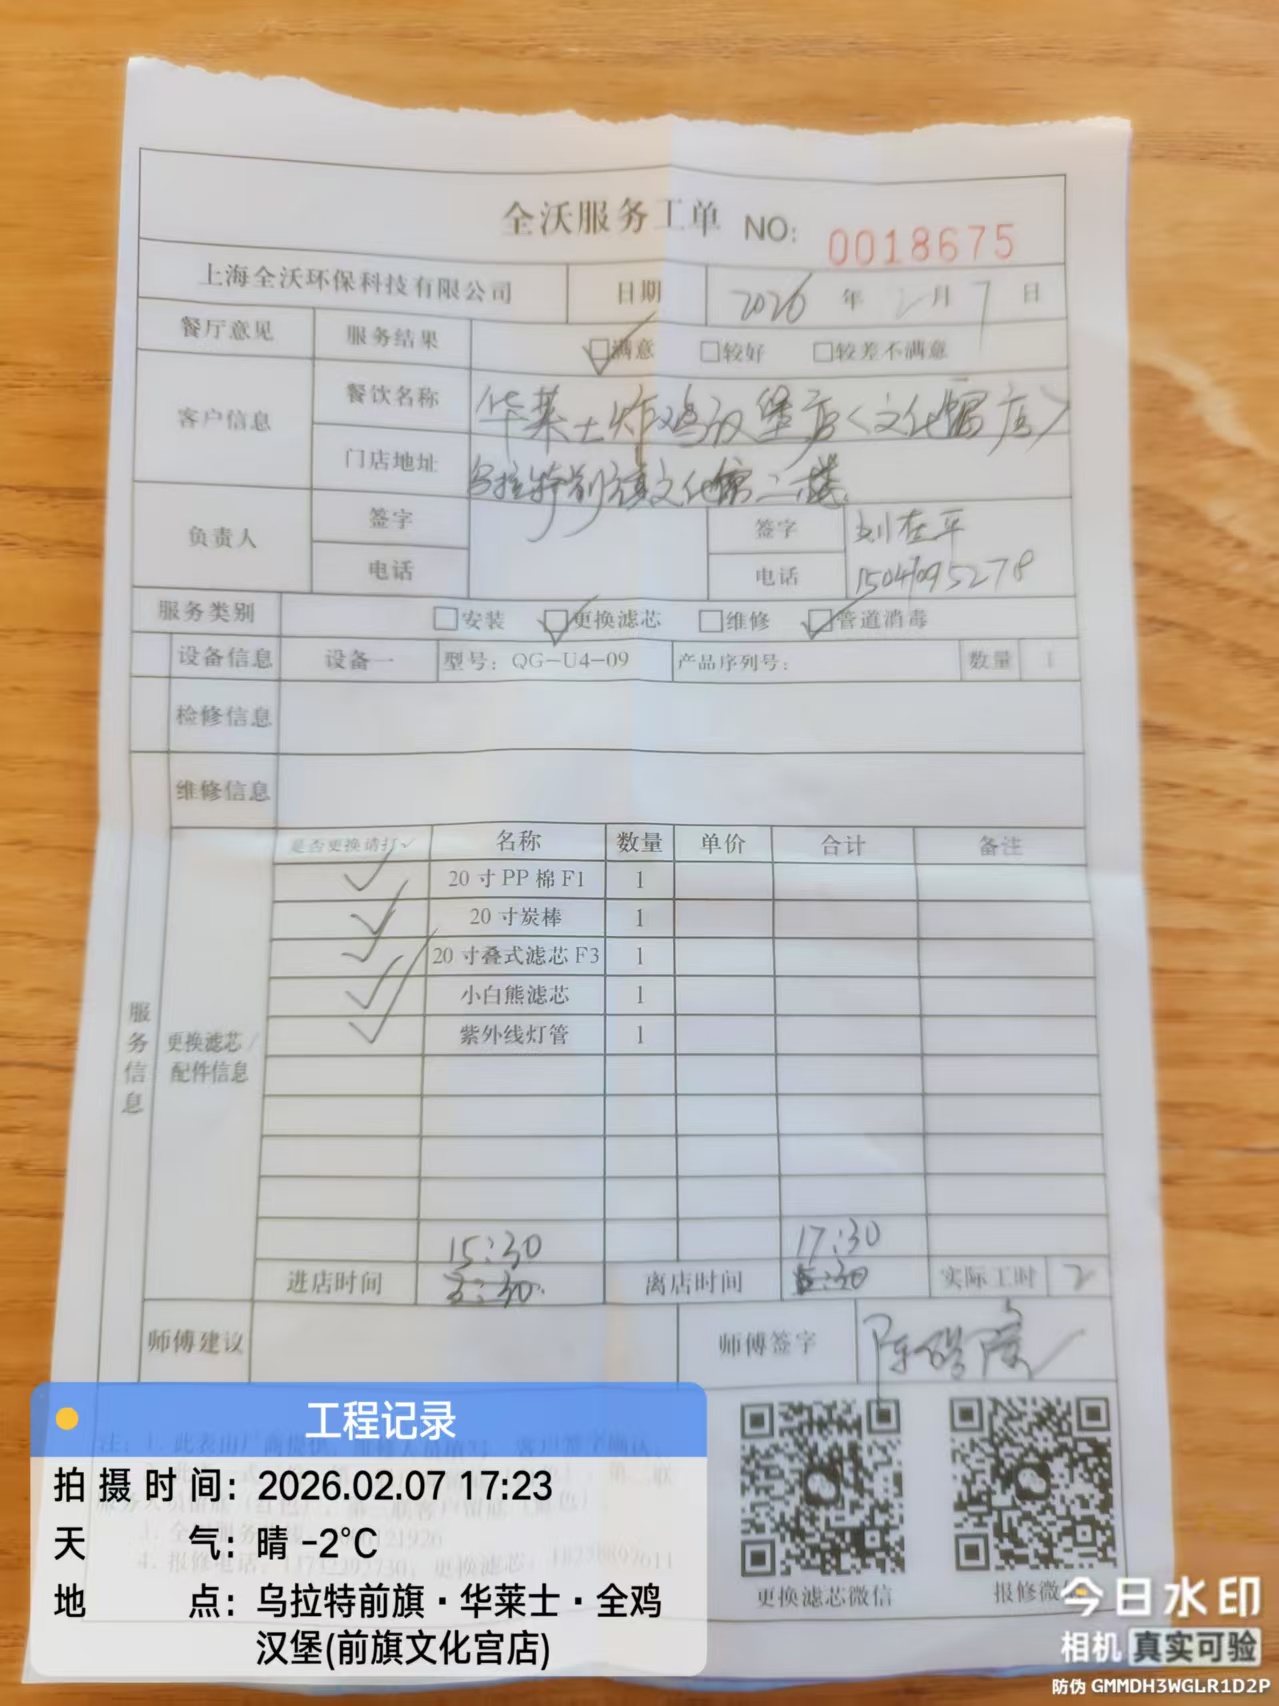 全沃服务工单 NO: 0018675
上海全沃环保科技有限公司 日期 2026 年 2 月 7 日
餐厅意见 服务结果 满意 较好 较差不满意
客户信息 餐饮名称 华莱士炸鸡汉堡店〈文化馆店〉
门店地址 乌拉特前旗文化馆二楼
负责人 签字 签字 刘在平
电话 电话 15041095278
服务类别 安装 更换滤芯 维修 管道消毒
设备信息 设备一 型号: QG-U4-09 产品序列号: 数量 1
检修信息
维修信息
服务信息
更换滤芯/
配件信息
是否更换请打✓ 名称 数量 单价 合计 备注
✓ 20 寸 PP 棉 F1 1
✓ 20 寸炭棒 1
✓ 20 寸叠式滤芯 F3 1
✓ 小白熊滤芯 1
✓ 紫外线灯管 1
15:30 17:30
进店时间 离店时间 实际工时 2
师傅建议 师傅签字
更换滤芯微信 报修微
工程记录
拍摄时间: 2026.02.07 17:23
天气: 晴 -2°C
地点: 乌拉特前旗·华莱士·全鸡
汉堡(前旗文化宫店)
今日水印
相机 真实可验
防伪 GMMDH3WGLR1D2P